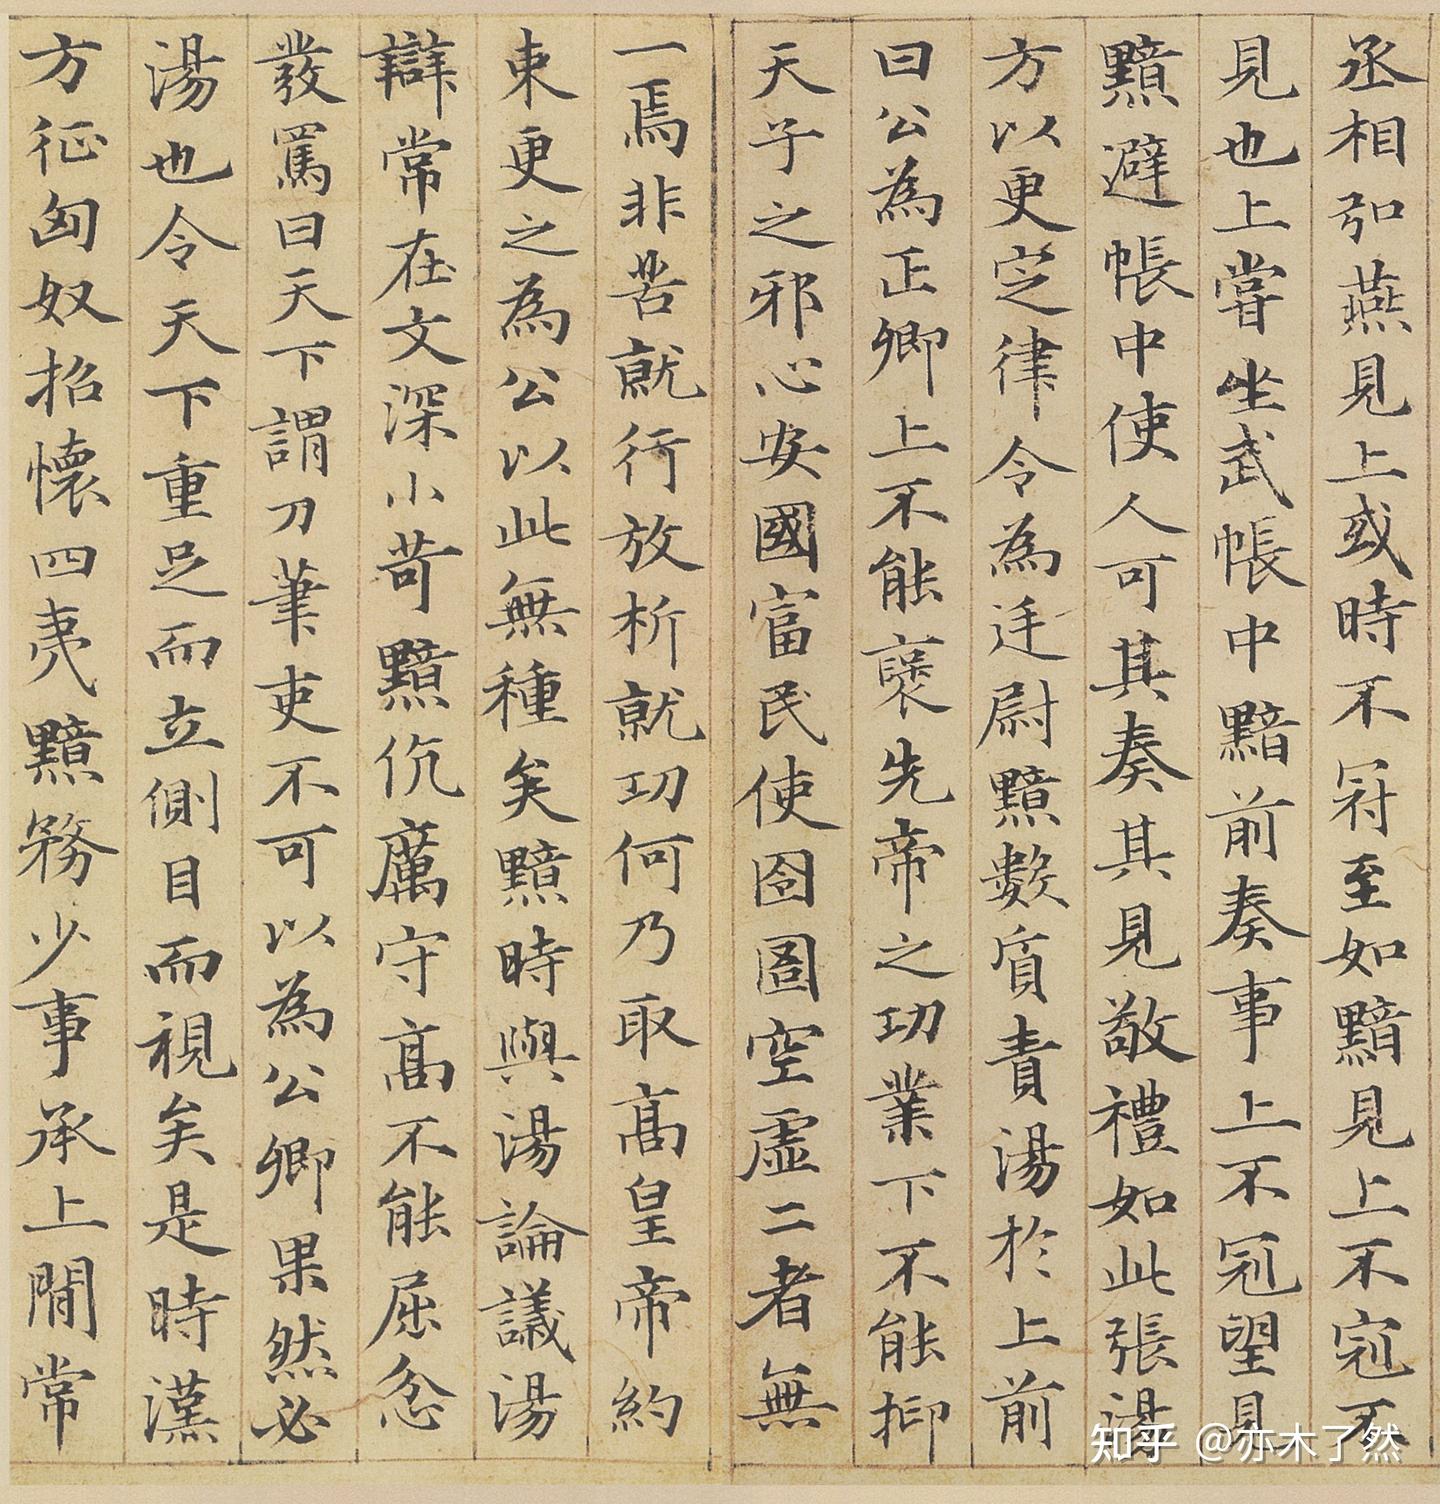 丞相弘燕見上或時不冠至如黯見上不冠不
見也上嘗坐武帳中黯前奏事上不冠望見
黯避帳中使人可其奏其見敬禮如此張湯
方以更定律令為廷尉黯數質責湯於上前
曰公為正卿上不能襃先帝之功業下不能抑
天子之邪心安國富民使囹圄空虛二者無
一焉非苦就行放析就功何乃取高皇帝約
束更之為公以此無種矣黯時與湯論議湯
辯常在文深小苛黯伉厲守高不能屈忿
發罵曰天下謂刀筆吏不可以為公卿果然必
湯也令天下重足而立側目而視矣是時漢
方征匈奴招懷四夷黯務少事承上閒常
知乎 @亦木了然